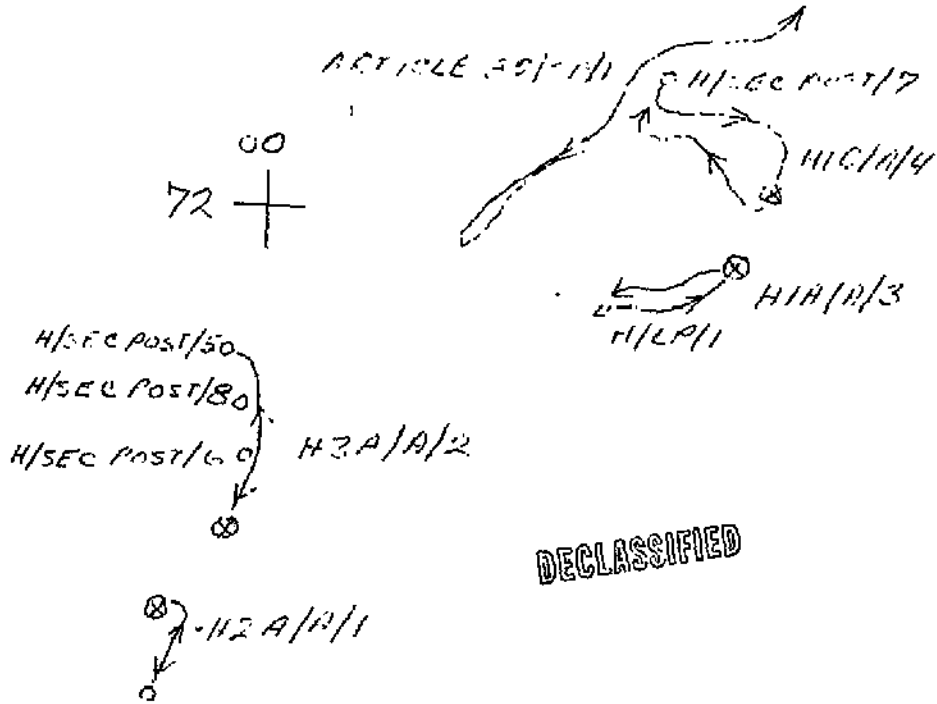 ARTICLE
H/SEC POST/7
00
H1C/A/4
72
H1A/A/3
H/LP/1
H/SEC POST/5
H/SEC POST/8
H/SEC POST/6
H3A/A/2
DECLASSIFIED
H2A/A/1